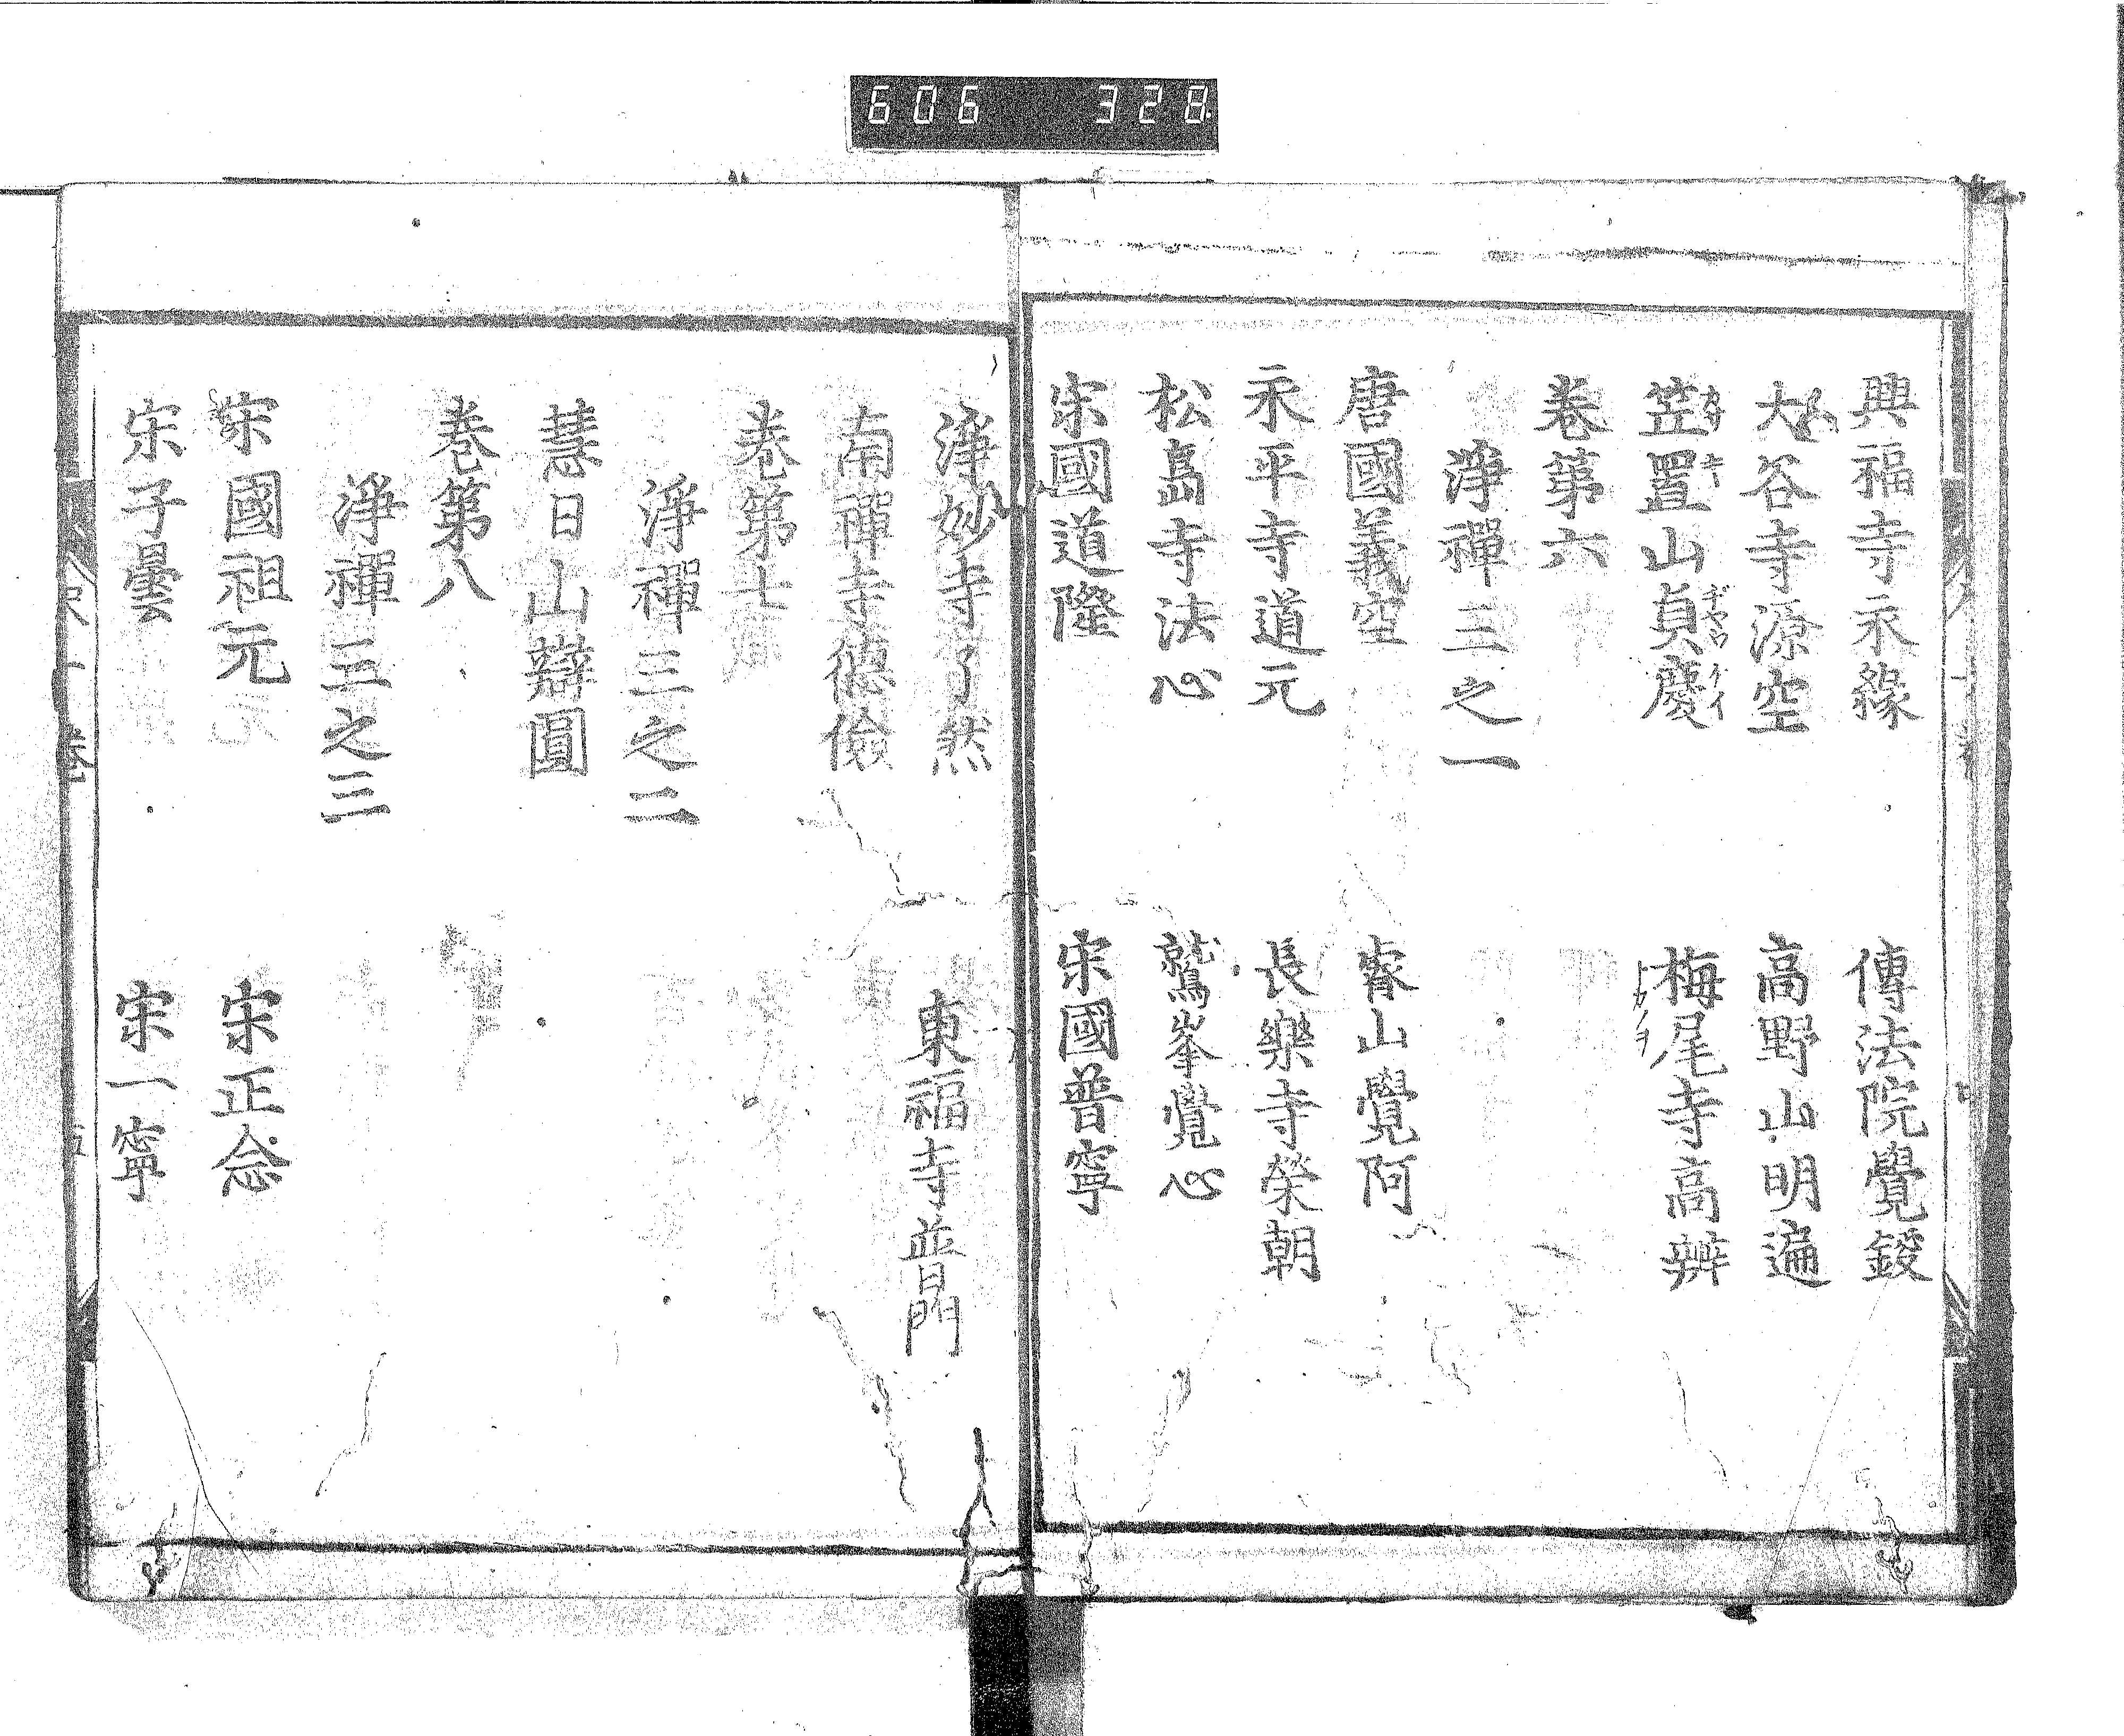 606 328
興福寺永緣 傳法院覺鑁
大谷寺源空 高野山明遍
笠置山貞慶 梅尾寺高辨
卷第六
淨禪三之一
唐國義空 睿山覺阿
永平寺道元 長樂寺榮朝
松島寺法心 鷲峯覺心
宋國道隆 宋國普寧
淨妙寺了然 東福寺普門
南禪寺德儉
卷第七
淨禪三之二
慧日山辯圓
卷第八
淨禪三之三
宋國祖元 宋正念
宋子曇 宋一寧